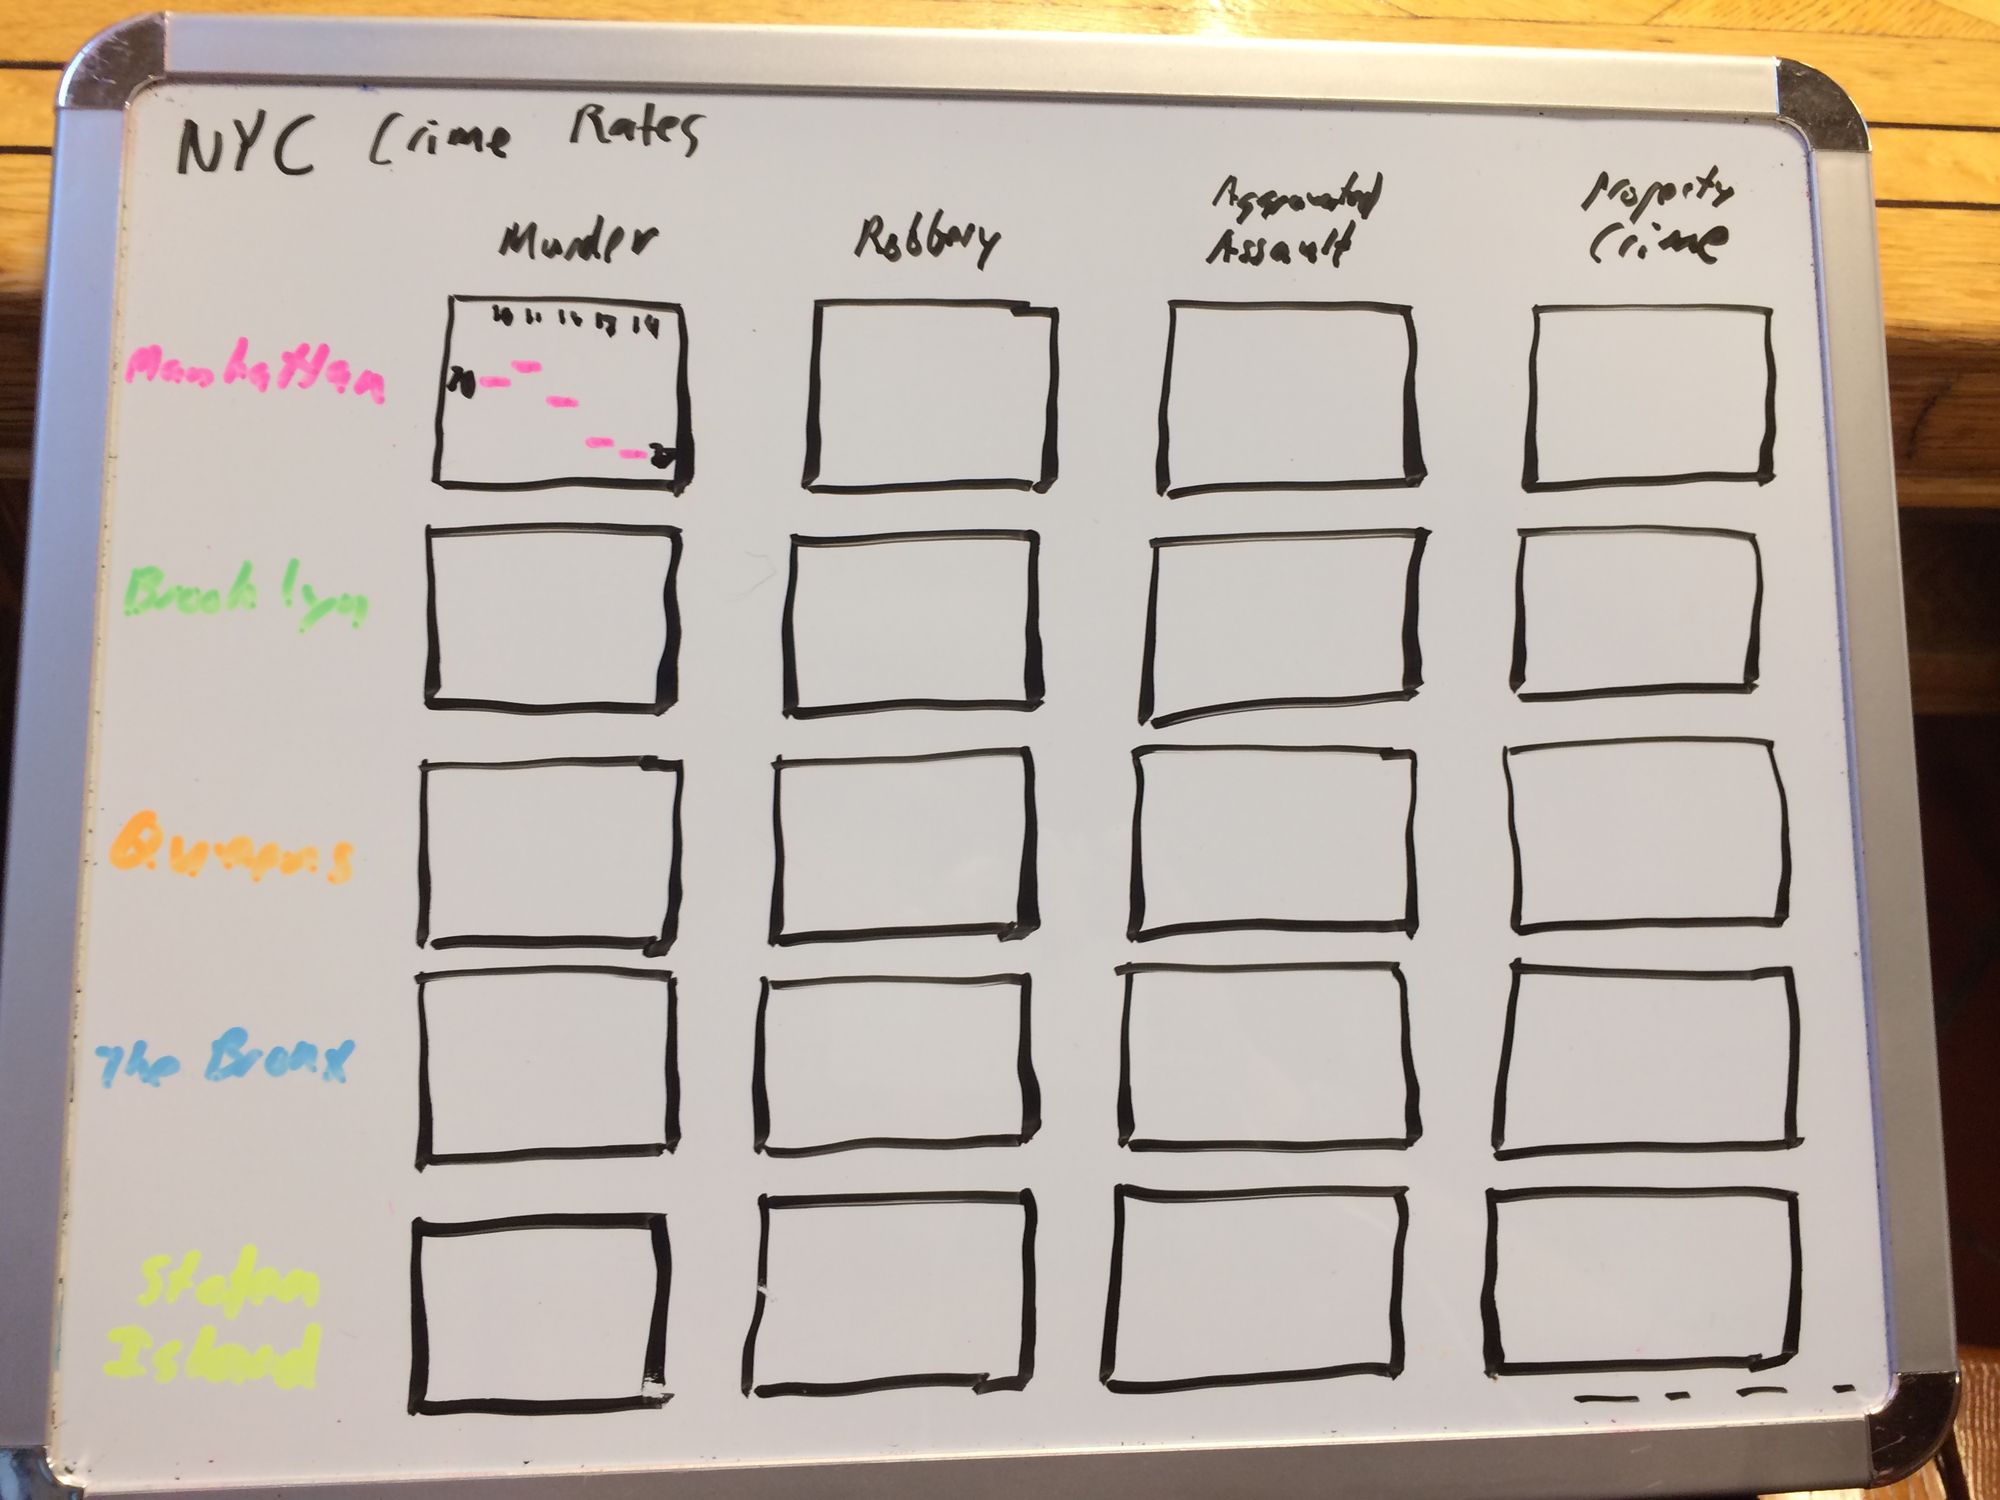 NYC Crime Rates
Murder
Robbery
Aggravated
Assault
Property
Crime
10 11 12 13 14
Manhattan
70
Brooklyn
Queens
The Bronx
Staten
Island